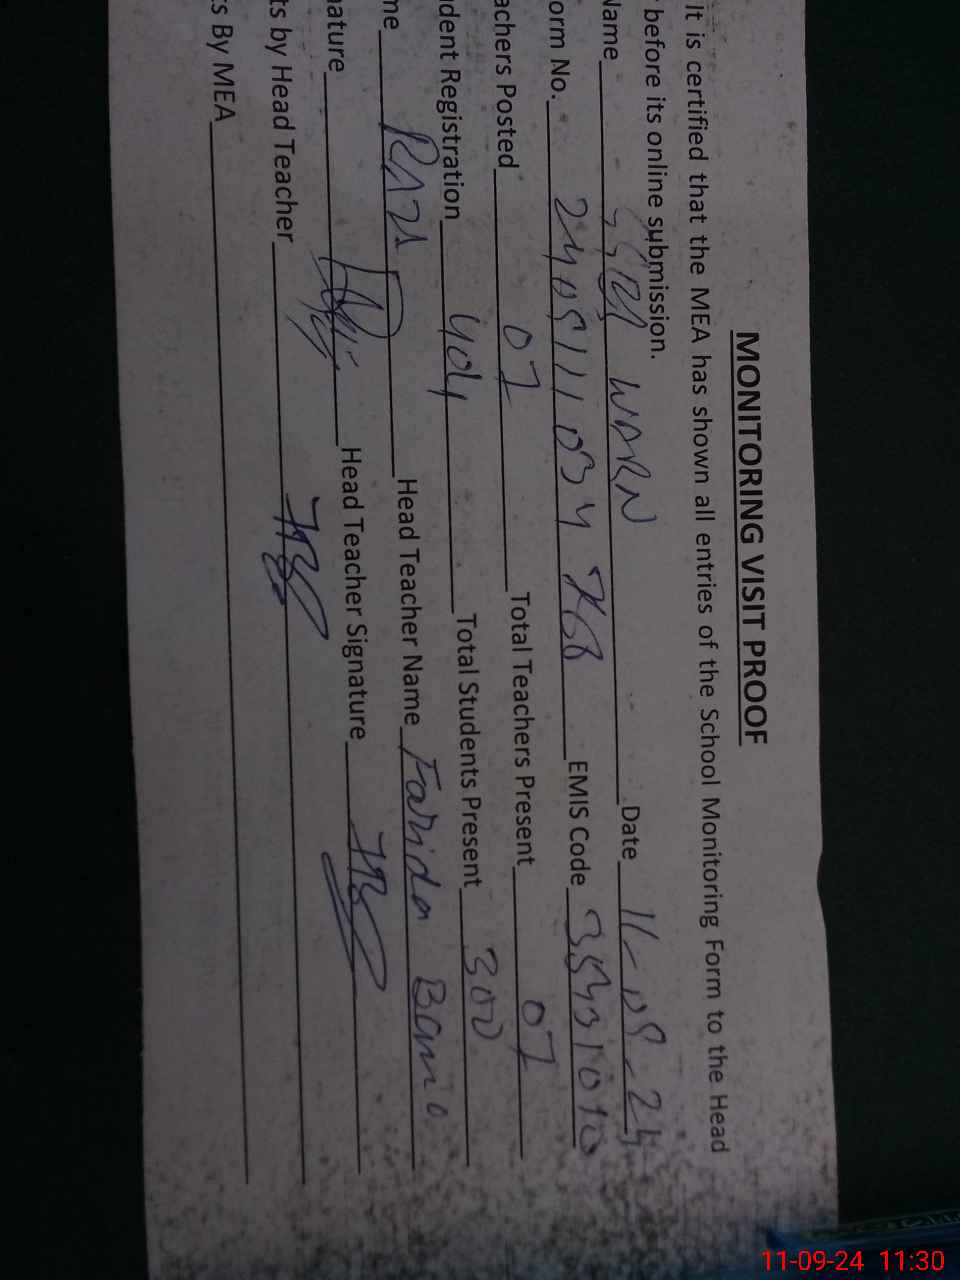 MONITORING VISIT PROOF
It is certified that the MEA has shown all entries of the School Monitoring Form to the Head
before its online submission.
Name WARN Date 11-09-24
orm No. EMIS Code
achers Posted 07 Total Teachers Present 07
dent Registration 404 Total Students Present 300
me Head Teacher Name Farida Bano
nature Head Teacher Signature
ts by Head Teacher
ts By MEA
11-09-24 11:30